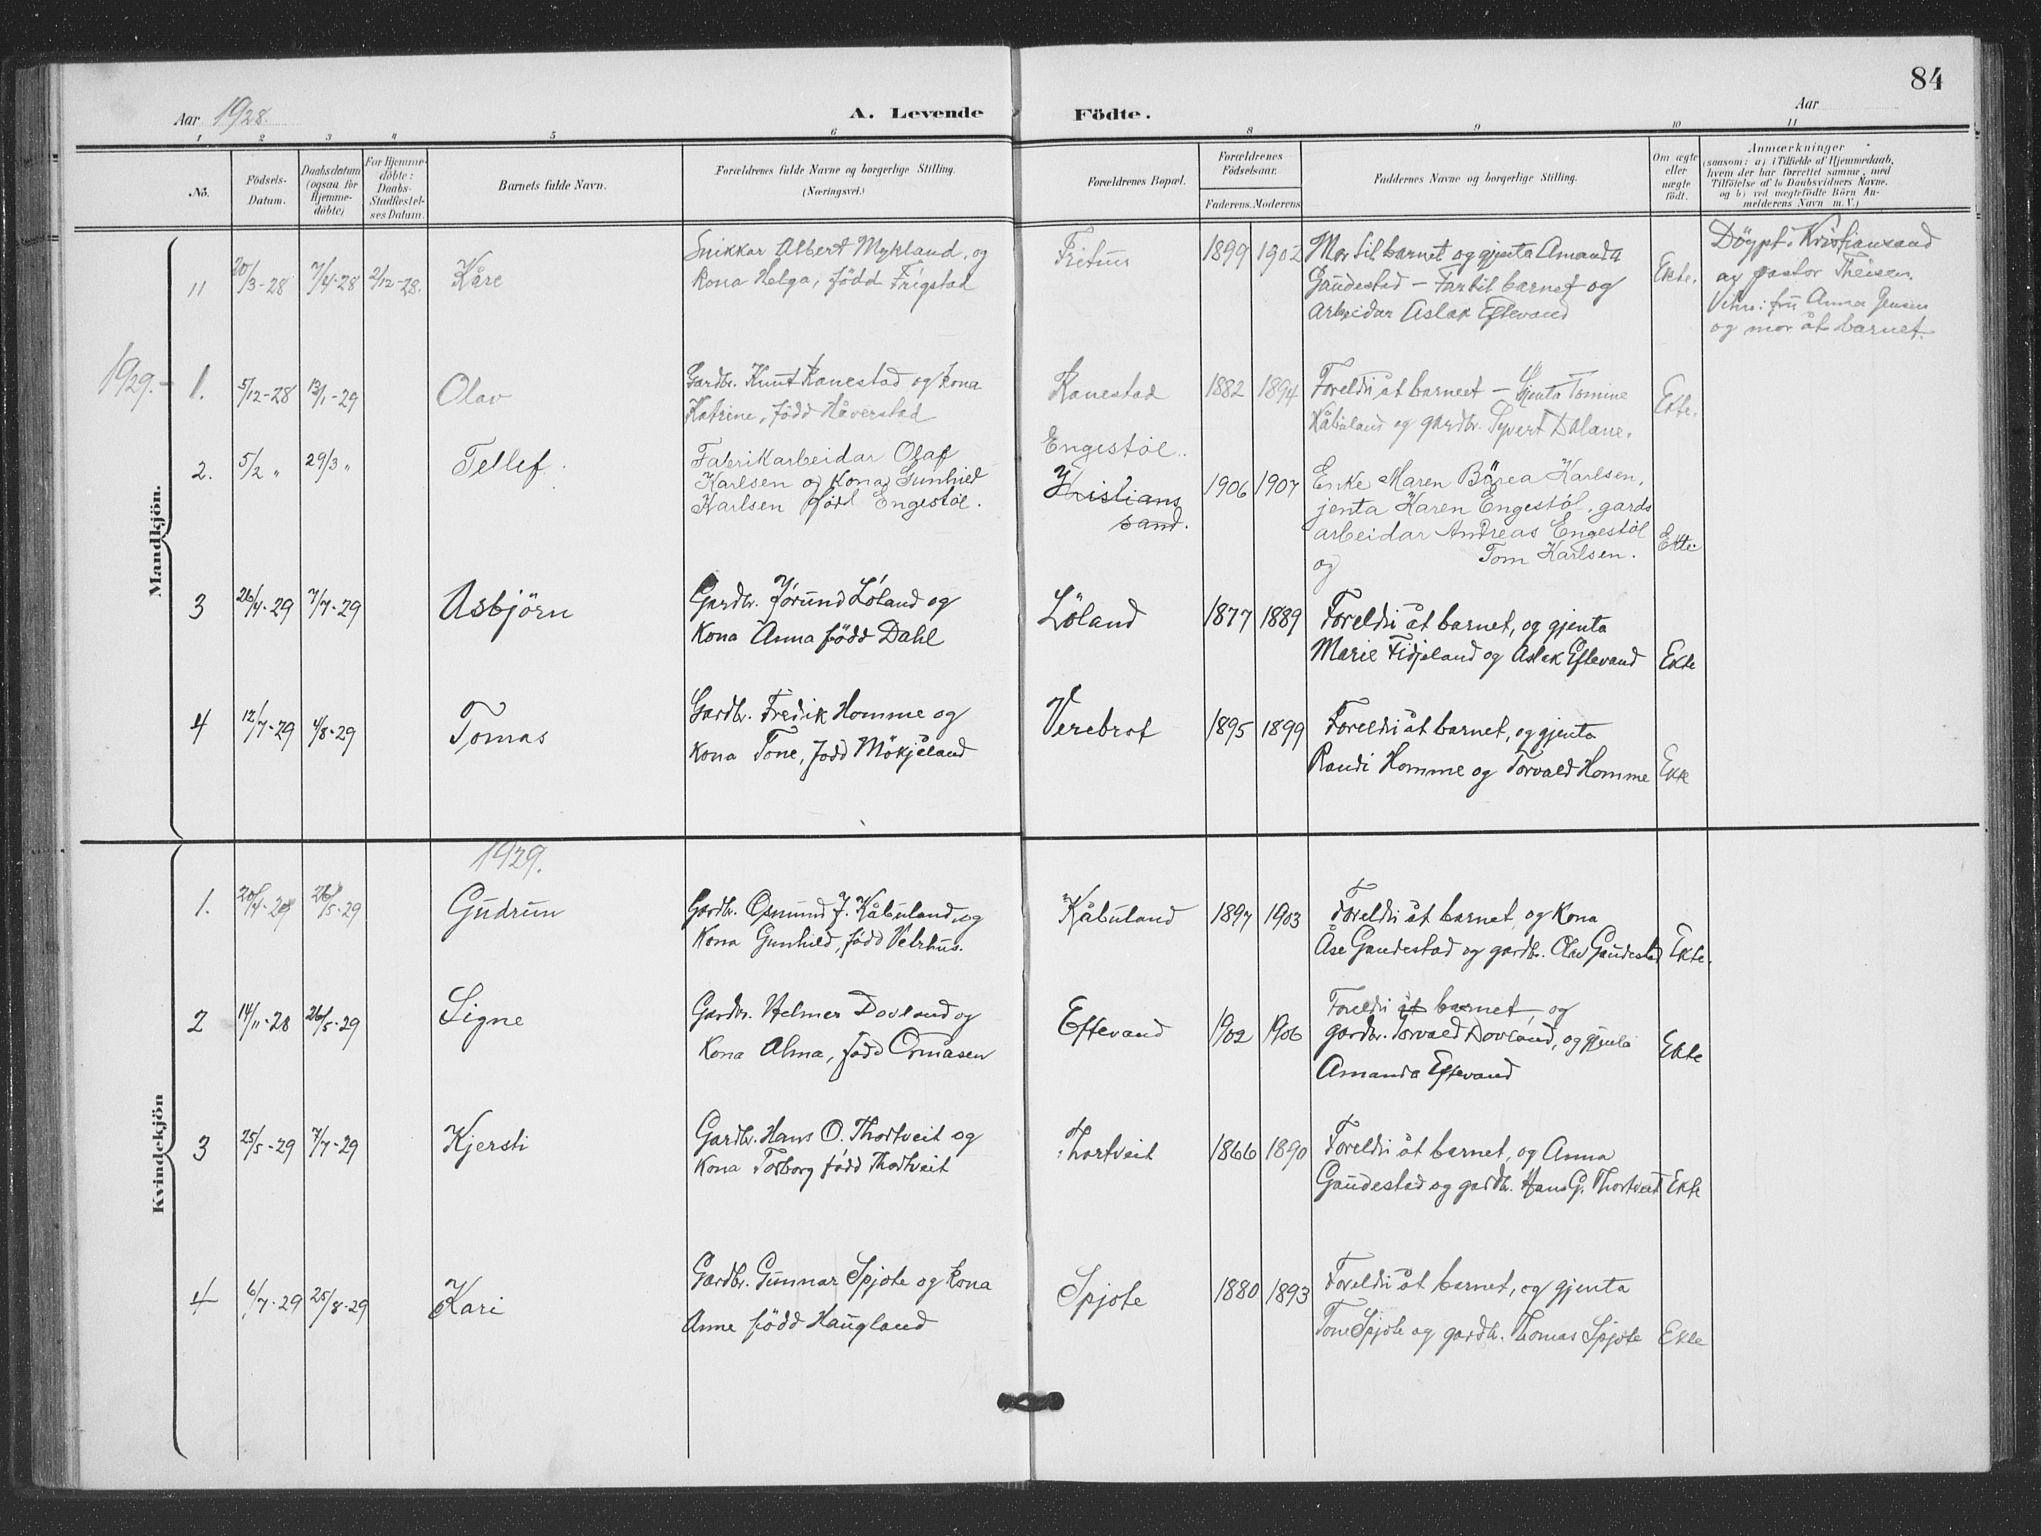 84
Aar 1928.
A. Levende Födte.
Aar
1 2 3 4 5 6 8 9 10 11
No.
Födsels-
Datum.
Daabsdatum
(ogsaa for
Hjemme-
döbte)
For Hjemme-
döbte:
Daabs-
Stadfæstel-
ses Datum.
Barnets fulde Navn.
Forældrenes fulde Navne og borgerlige Stilling.
(Næringsvei.)
Forældrenes Bopæl.
Forældrenes
Födselsaar.
Faderens. Moderens.
Faddernes Navne og borgerlige Stilling.
Om ægte
eller
uægte
födt.
Anmærkninger
(saasom: a) i Tilfælde af Hjemmedaab,
hvem der har forrettet samme, med
Tilföielse af to Daabsvidners Navne.
og b) ved uægtefödte Börn An-
melderens Navn m. V.)
Mandkjön.
11 20/3-28 7/4-28 2/12-28. Kåre
Snikkar Albert Mykland, og
Kona Helga, född Frigstad
Fritun 1899 1902
Mor til barnet og gjenta Amanda
Gaudestad – Far til barnet og
arbeidar Aslak Eftevand
Ekte.
Døypt i Kristiansand
av pastor Theisen.
Vitn: frú Anna Jensen
og mor åt barnet.
1929.– 1. 5/12-28 13/1-29 Olav
Gardbr. Knut Ranestad og kona
Katrine, född Håverstad
Ranestad 1882 1894
Foreldri åt barnet – Gjenta Tomine
Kåbuland og gardbr. Syvert Dalane.
Ekte.
2. 5/2 " 29/3 " Tellef.
Fabrikarbeidar Olaf
Karlsen og Kona Gunhild
Karlsen född Engestöl.
Engestöl.
Kristians
sand.
1906 1907
Enke Maren Börea Karlsen,
jenta Karen Engestöl, gards
arbeidar Andreas Engestöl
og Tom Karlsen.
Ekte.
3 26/4-29 7/7-29 Asbjörn
Gardbr. Jörund Löland og
Kona Anna född Dahl
Löland 1877 1889
Foreldri åt barnet, og gjenta
Marie Fidjeland og Aslak Eftevand
Ekte
4 12/7-29 4/8-29 Tomas
Gardbr. Fredrik Homme og
Kona Tone, född Mökjåland
Verebrot 1895 1899
Foreldri åt barnet, og gjenta
Randi Homme og Torvald Homme
Ekte
Kvindekjön
1929.
1. 20/4-29 26/5-29 Gudrun
Gardbr. Osmund J. Kåbuland og
Kona Gunhild, född Velrhus.
Kåbuland 1897 1903
Foreldri åt barnet, og Kona
Åse Gaudestad og gardbr. Olav Gaudestad
Ekte.
2 14/11-28 26/5-29 Signe
Gardbr. Helmer Dovland og
Kona Alma, född Omåsen
Eftevand 1902 1906
Foreldri åt barnet, og
gardbr. Torvald Dovland, og gjenta
Amanda Eftevand
Ekte
3 25/5-29 7/7-29 Kjersti
Gardbr. Hans O. Thortveit og
Kona Torborg född Thortveit
Thortveit 1866 1890
Foreldri åt barnet, og Anna
Gaudestad og gardb. Hans G. Thortveit
Ekte
4 6/7-29 25/8-29 Kari
Gardbr. Gunnar Spjote og kona
Anne född Haugland
Spjote 1880 1893
Foreldri åt barnet, og gjenta
Tone Spjote og gardb. Thomas Spjote
Ekte